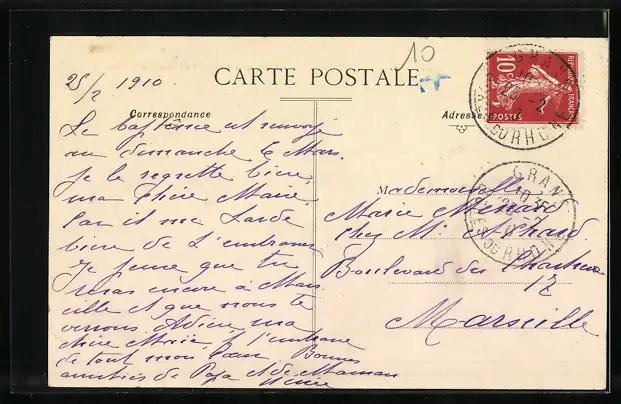 10
25/2 1910
CARTE POSTALE
RÉPUBLIQUE FRANÇAISE
10c
POSTES
Correspondance
Adresse
Le baptême est renvoyé
au dimanche 6 Mars.
Je le regrette bien,
ma chère Marie,
car il me tarde
bien de t'embrasser
Je pense que tu
seras encore à Mars
eille et que nous te
verrons Adieu ma
chère Marie, je t'embrasse
de tout mon cœur Bonnes
amitiés de Papa et de Maman
Mademoiselle
Marie
chez Mr Achard
Boulevard des Chartreux
17
Marseille
GRANS
BCHES DU RHONE
GRANS
BCHES DU RHONE